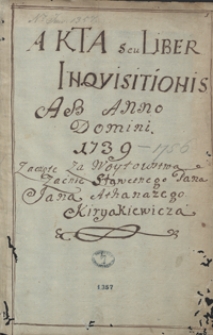 AKTA seu LIBER
INQVISITIONIS
AB ANNO
Domini
1739 - 1756
Zaczęte Za Woytowstwa
Zacnie Sławetnego Pana
Jana Athanazego
Kiryakiewicza
1387